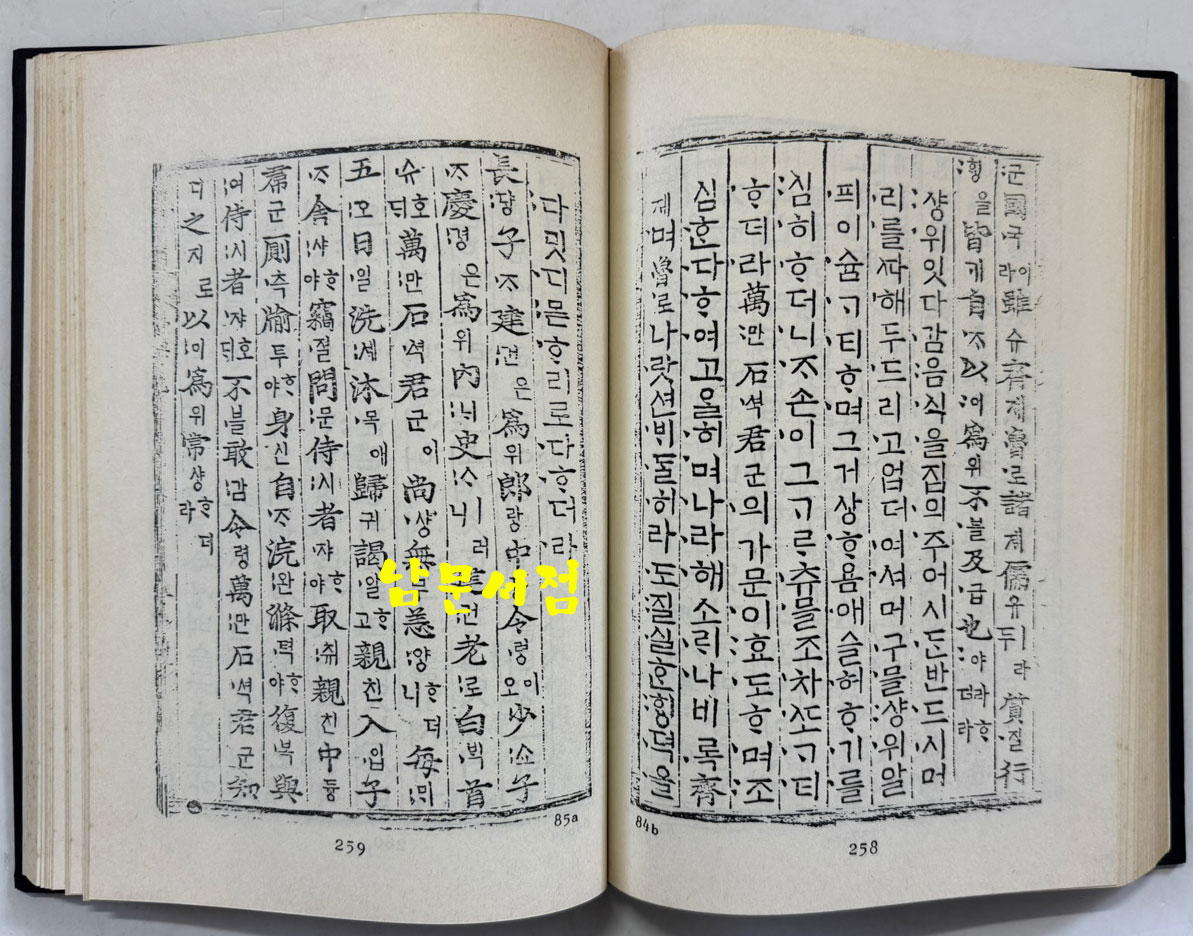 군國국이라雖슈齊졔魯로諸져儒유ㅣ라두質질行
ᄒᆡᆼ을皆개自ᄌᆞ以이爲위不블及급也야ᄒᆞ더라
샹위잇다감음식을집의주어시든반드시머
리를좃아해두드리고업더여셔머구믈샹위알
피이숌ᄀᆞ티ᄒᆞ며그거상ᄒᆞ욤애슬허ᄒᆞ기를
심히ᄒᆞ더니ᄌᆞ손이그ᄀᆞᄅᆞ츄믈조차ᄯᅩᄀᆞ티
ᄒᆞ더라萬만石셕君군의가문이효도ᄒᆞ며조
심ᄒᆞᆫ다ᄒᆞ여고을히며나라해소ᄅᆡ나비록齊
졔며魯로나랏션ᄇᆡᄃᆞᆯ히라도질실ᄒᆞᆫᄒᆡᆼ뎍을
84b
258
다밋디몯ᄒᆞ리로다ᄒᆞ더라
長댱子ᄌᆞ建건은爲위郞랑中듕令령이오少쇼子
ᄌᆞ慶경은爲위內ᄂᆡ史ᄉᆞㅣ러니建건老로白ᄇᆡᆨ首
슈호ᄃᆡ萬만石셕君군이尙샹無무恙양ᄒᆞ더니每ᄆᆡ
五오日일洗셰沐목애歸귀謁알ᄒᆞ고親친入입子
ᄌᆞ舍샤ᄒᆞ야竊졀問문侍시者쟈ᄒᆞ야取취親친中듕
帬군廁측牏투ᄒᆞ야身신自ᄌᆞ浣완滌텩ᄒᆞ야復복與
여侍시者쟈호ᄃᆡ不블敢감令령萬만石셕君군知
디之지로以이爲위常샹ᄒᆞ더라
85a
259
남문서점